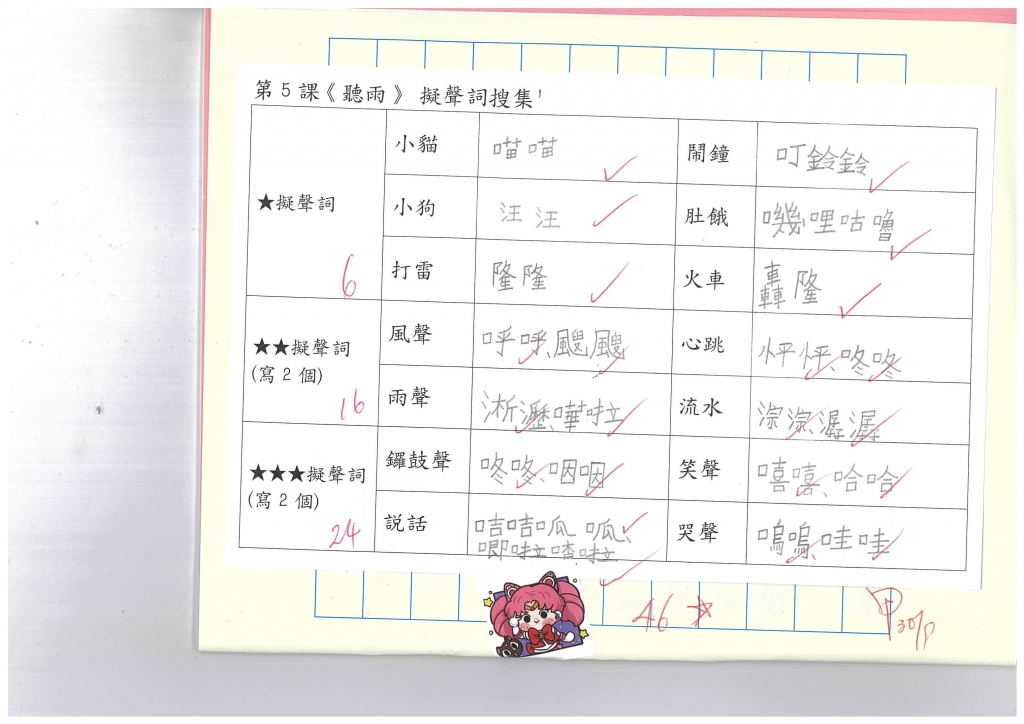 第5課《聽雨》 擬聲詞搜集
★擬聲詞
6
小貓 喵喵 鬧鐘 叮鈴鈴
小狗 汪汪 肚餓 嘰哩咕嚕
打雷 隆隆 火車 轟隆
★★擬聲詞
(寫2個)
16
風聲 呼呼、颼颼 心跳 怦怦、咚咚
雨聲 淅瀝、嘩啦 流水 淙淙、潺潺
★★★擬聲詞
(寫2個)
24
鑼鼓聲 咚咚、咽咽 笑聲 嘻嘻、哈哈
説話 咭咭呱呱、
唧啦喳啦
哭聲 嗚嗚、哇哇
46 ☆
30/